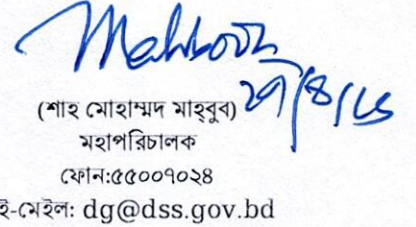 Mahboob
২৭/৪/২৫
(শাহ মোহাম্মদ মাহ্‌বুব)
মহাপরিচালক
ফোন:৫৫০০৭০২৪
ই-মেইল: dg@dss.gov.bd